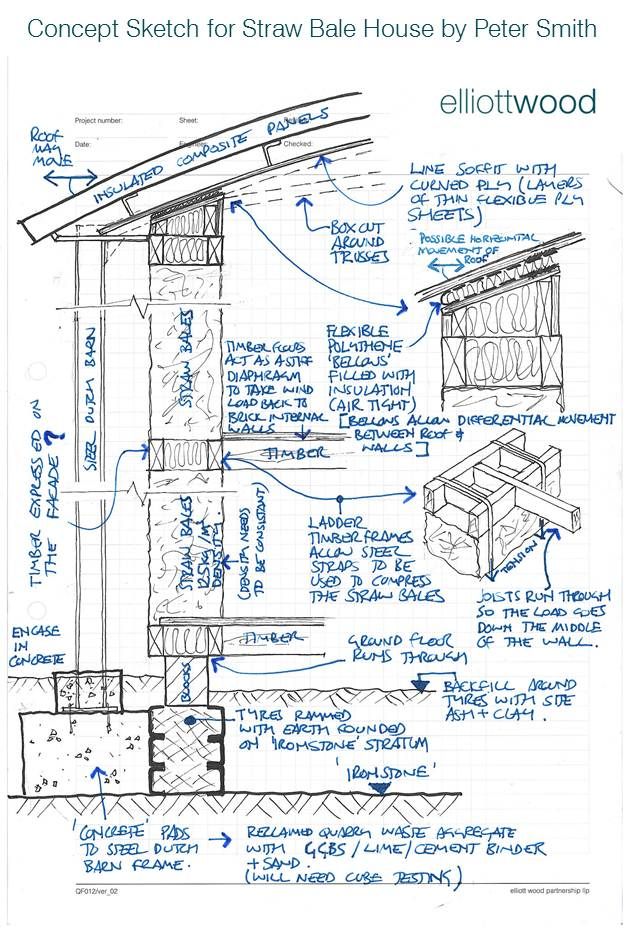 Concept Sketch for Straw Bale House by Peter Smith
elliottwood
Project number:
Sheet:
Date:
Checked:
ROOF
MAY
MOVE
INSULATED COMPOSITE PANELS
LINE SOFFIT WITH
CURNED PLY (LAYERS
OF THIN FLEXIBLE PLY
SHEETS)
BOX CUT
AROUND
TRUSSES
POSSIBLE HORIZONTAL
MOVEMENT OF
ROOF
STRAW BALES
STEEL DUTCH BARN
TIMBER EXPRESSED ON
THE FACADE?
TIMBER FLOORS
ACT AS A STIFF
DIAPHRAGM
TO TAKE WIND
LOAD BACK TO
BRICK INTERNAL
WALLS
FLEXIBLE
POLYTHENE
'BELLOWS'
FILLED WITH
INSULATION
(AIR TIGHT)
[BELLOWS ALLOW DIFFERENTIAL MOVEMENT
BETWEEN ROOF &
WALLS]
TIMBER
STRAW BALES
125KG/M³
DENSITY
(DENSITY NEEDS
TO BE CONSISTANT)
LADDER
TIMBER FRAMES
ALLOW STEEL
STRAPS TO BE
USED TO COMPRESS
THE STRAW BALES
TENSION
JOISTS RUN THROUGH
SO THE LOAD GOES
DOWN THE MIDDLE
OF THE WALL.
TIMBER
ENCASE
IN
CONCRETE
GROUND FLOOR
RUNS THROUGH
BLOCKS
BACKFILL AROUND
TYRES WITH SITE
ASH + CLAY.
TYRES RAMMED
WITH EARTH FOUNDED
ON 'IRONSTONE' STRATUM
'IRONSTONE'
'CONCRETE' PADS
TO STEEL DUTCH
BARN FRAME.
RECLAIMED QUARRY WASTE AGGREGATE
WITH GGBS / LIME / CEMENT BINDER
+ SAND.
(WILL NEED CUBE TESTING)
QF012/ver_02
elliott wood partnership llp